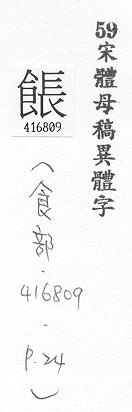 59宋體母稿異體字
餦
416809
(食部.416809.P.24)